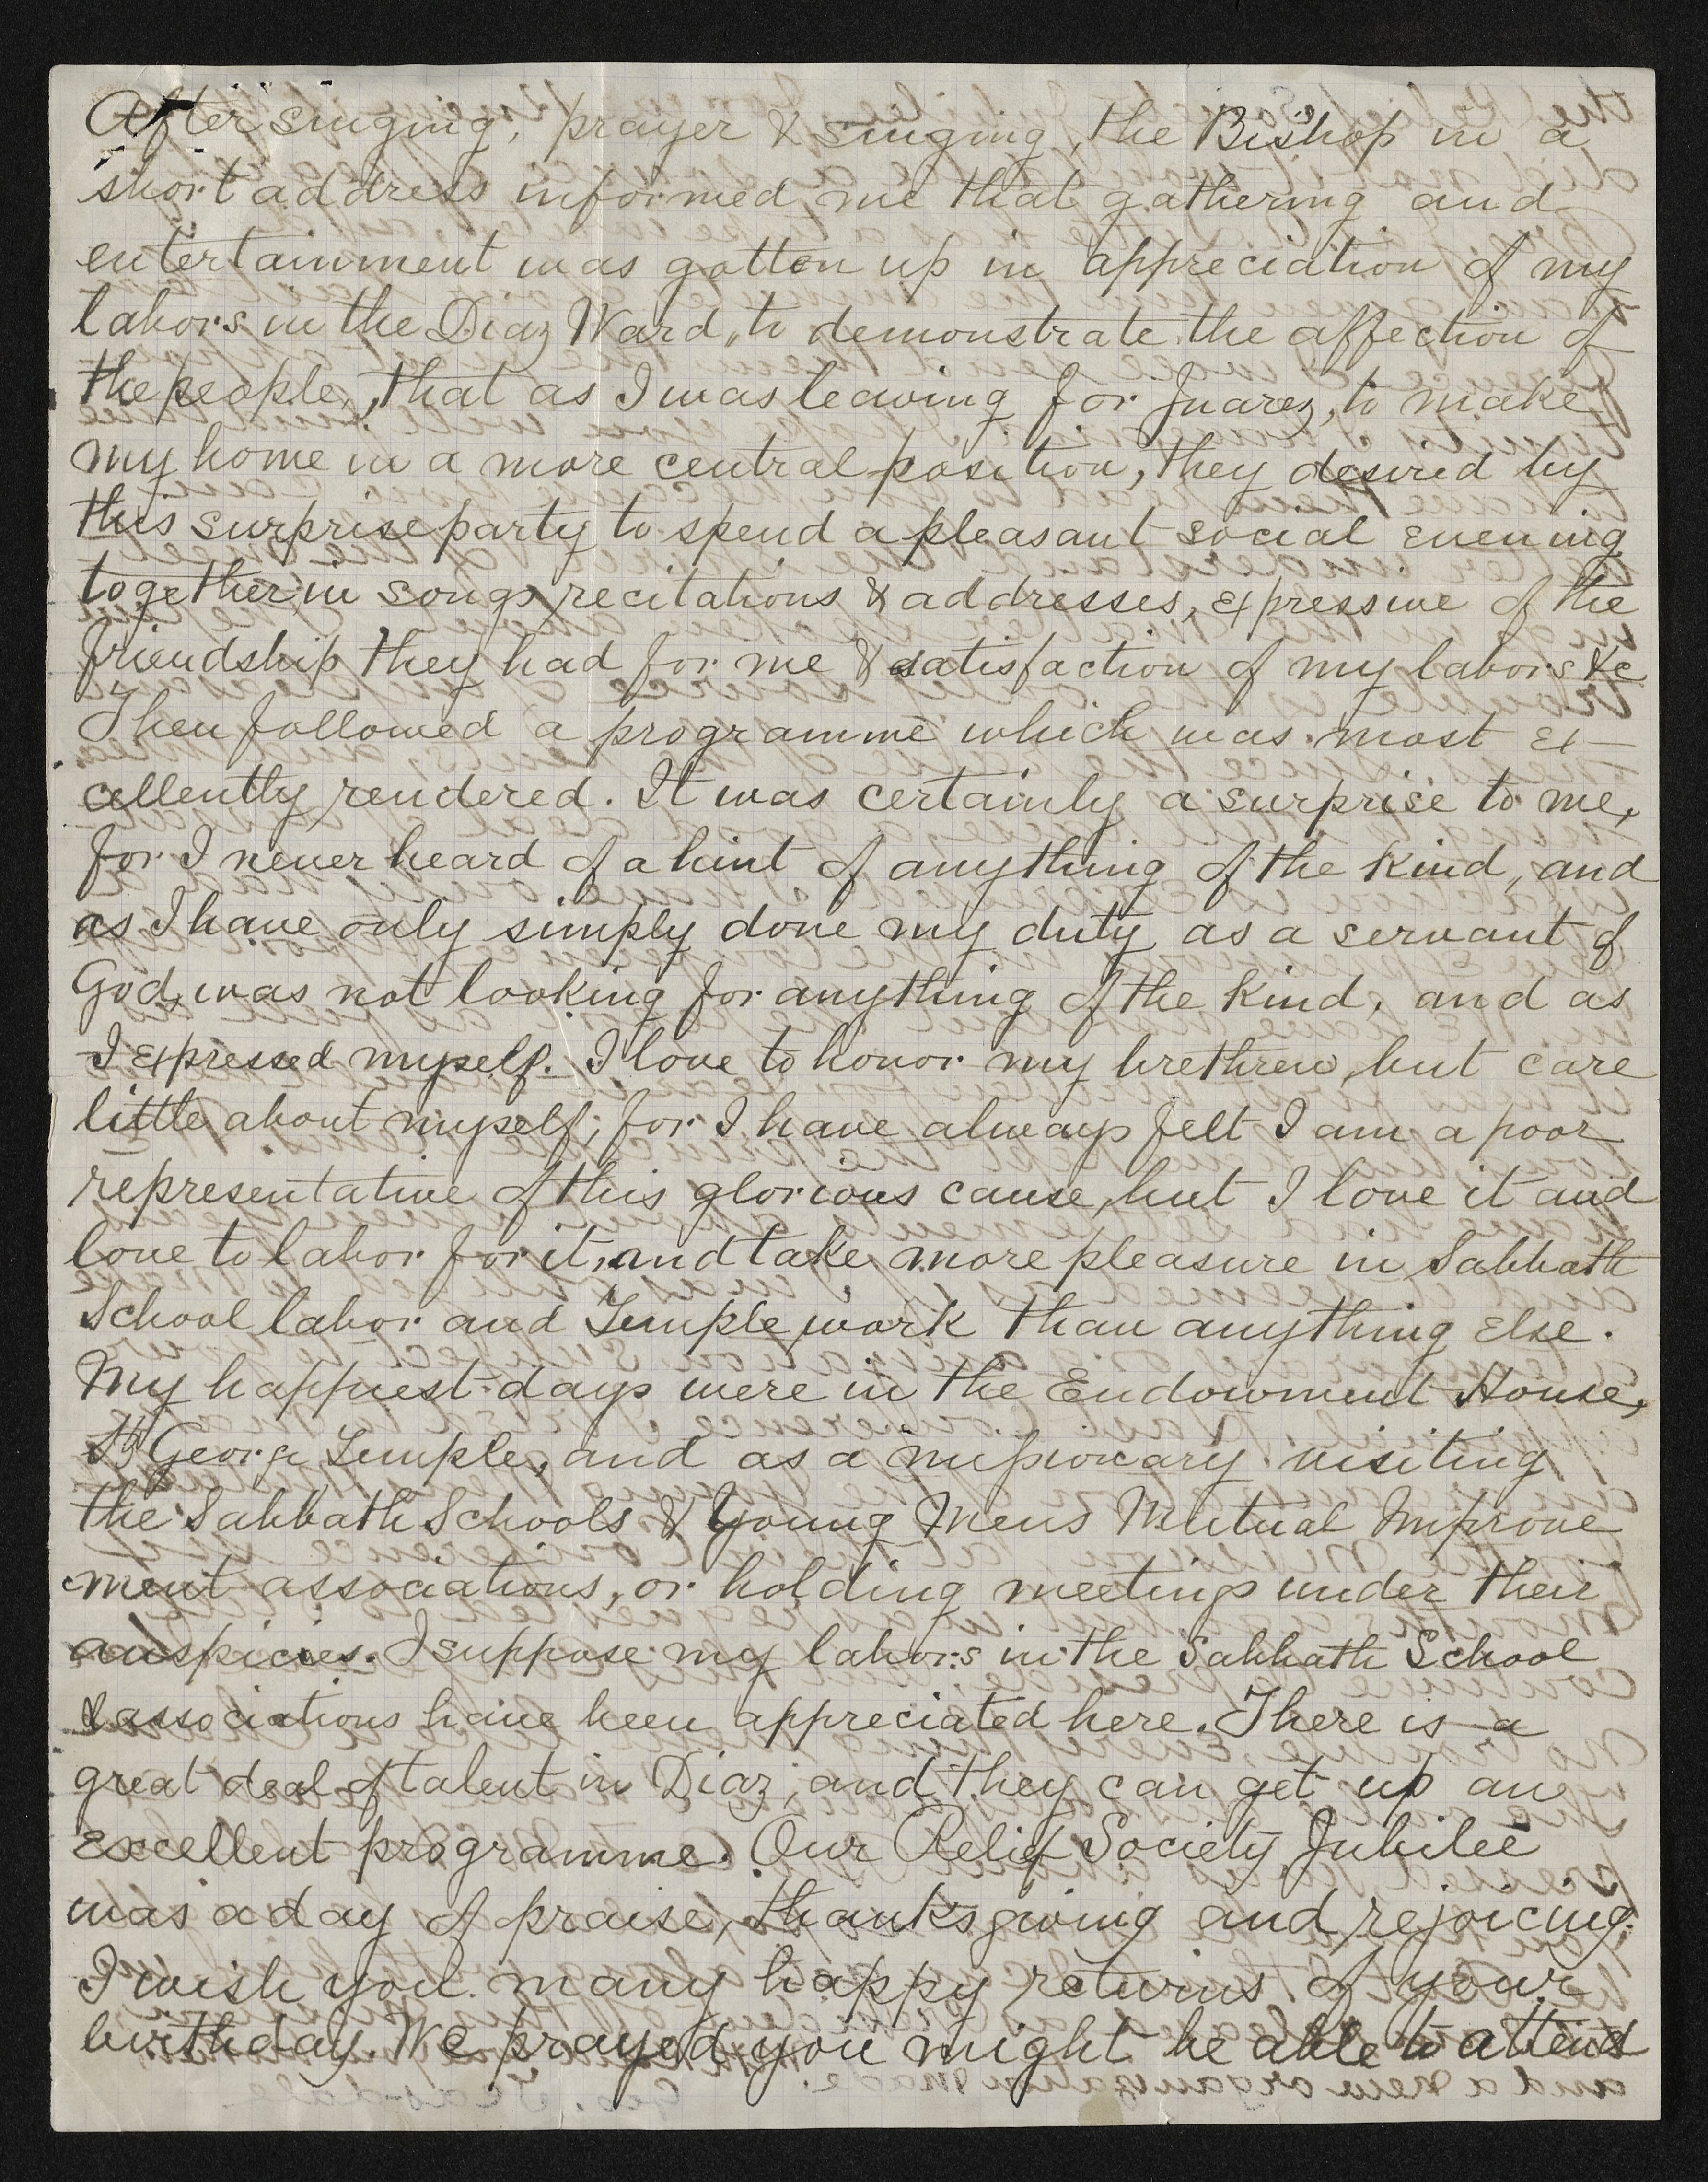 After singing, prayer & singing, the Bishop in a
short address informed me that gathering and
entertainment was gotten up in appreciation of my
labors in the Diaz Ward, to demonstrate the affection of
the people, that as I was leaving for Juarez, to make
my home in a more central position, they desired by
this surprise party to spend a pleasant social evening
together in songs, recitations & addresses, expressive of the
friendship they had for me & satisfaction of my labors &c
Then followed a programme which was most ex-
cellently rendered. It was certainly a surprise to me,
for I never heard of a hint of anything of the kind, and
as I have only simply done my duty as a servant of
God, was not looking for anything of the kind, and as
I expressed myself. I love to honor my brethren, but care
little about myself; for I have always felt I am a poor
representative of this glorious cause, but I love it and
love to labor for it, and take more pleasure in Sabbath
School labor and Temple work than anything else.
My happiest days were in the Endowment House,
St George Temple, and as a missionary visiting
the Sabbath Schools & Young Mens Mutual Improve
ment associations, or holding meetings under their
auspicies. I suppose my labors in the Sabbath School
& associations have been appreciated here. There is a
great deal of talent in Diaz, and they can get up an
excellent programme. Our Relief Society Jubilee
was a day of praise, thanksgiving and rejoicing.
I wish you many happy returns of your
birthday. We prayed you might be able to attend